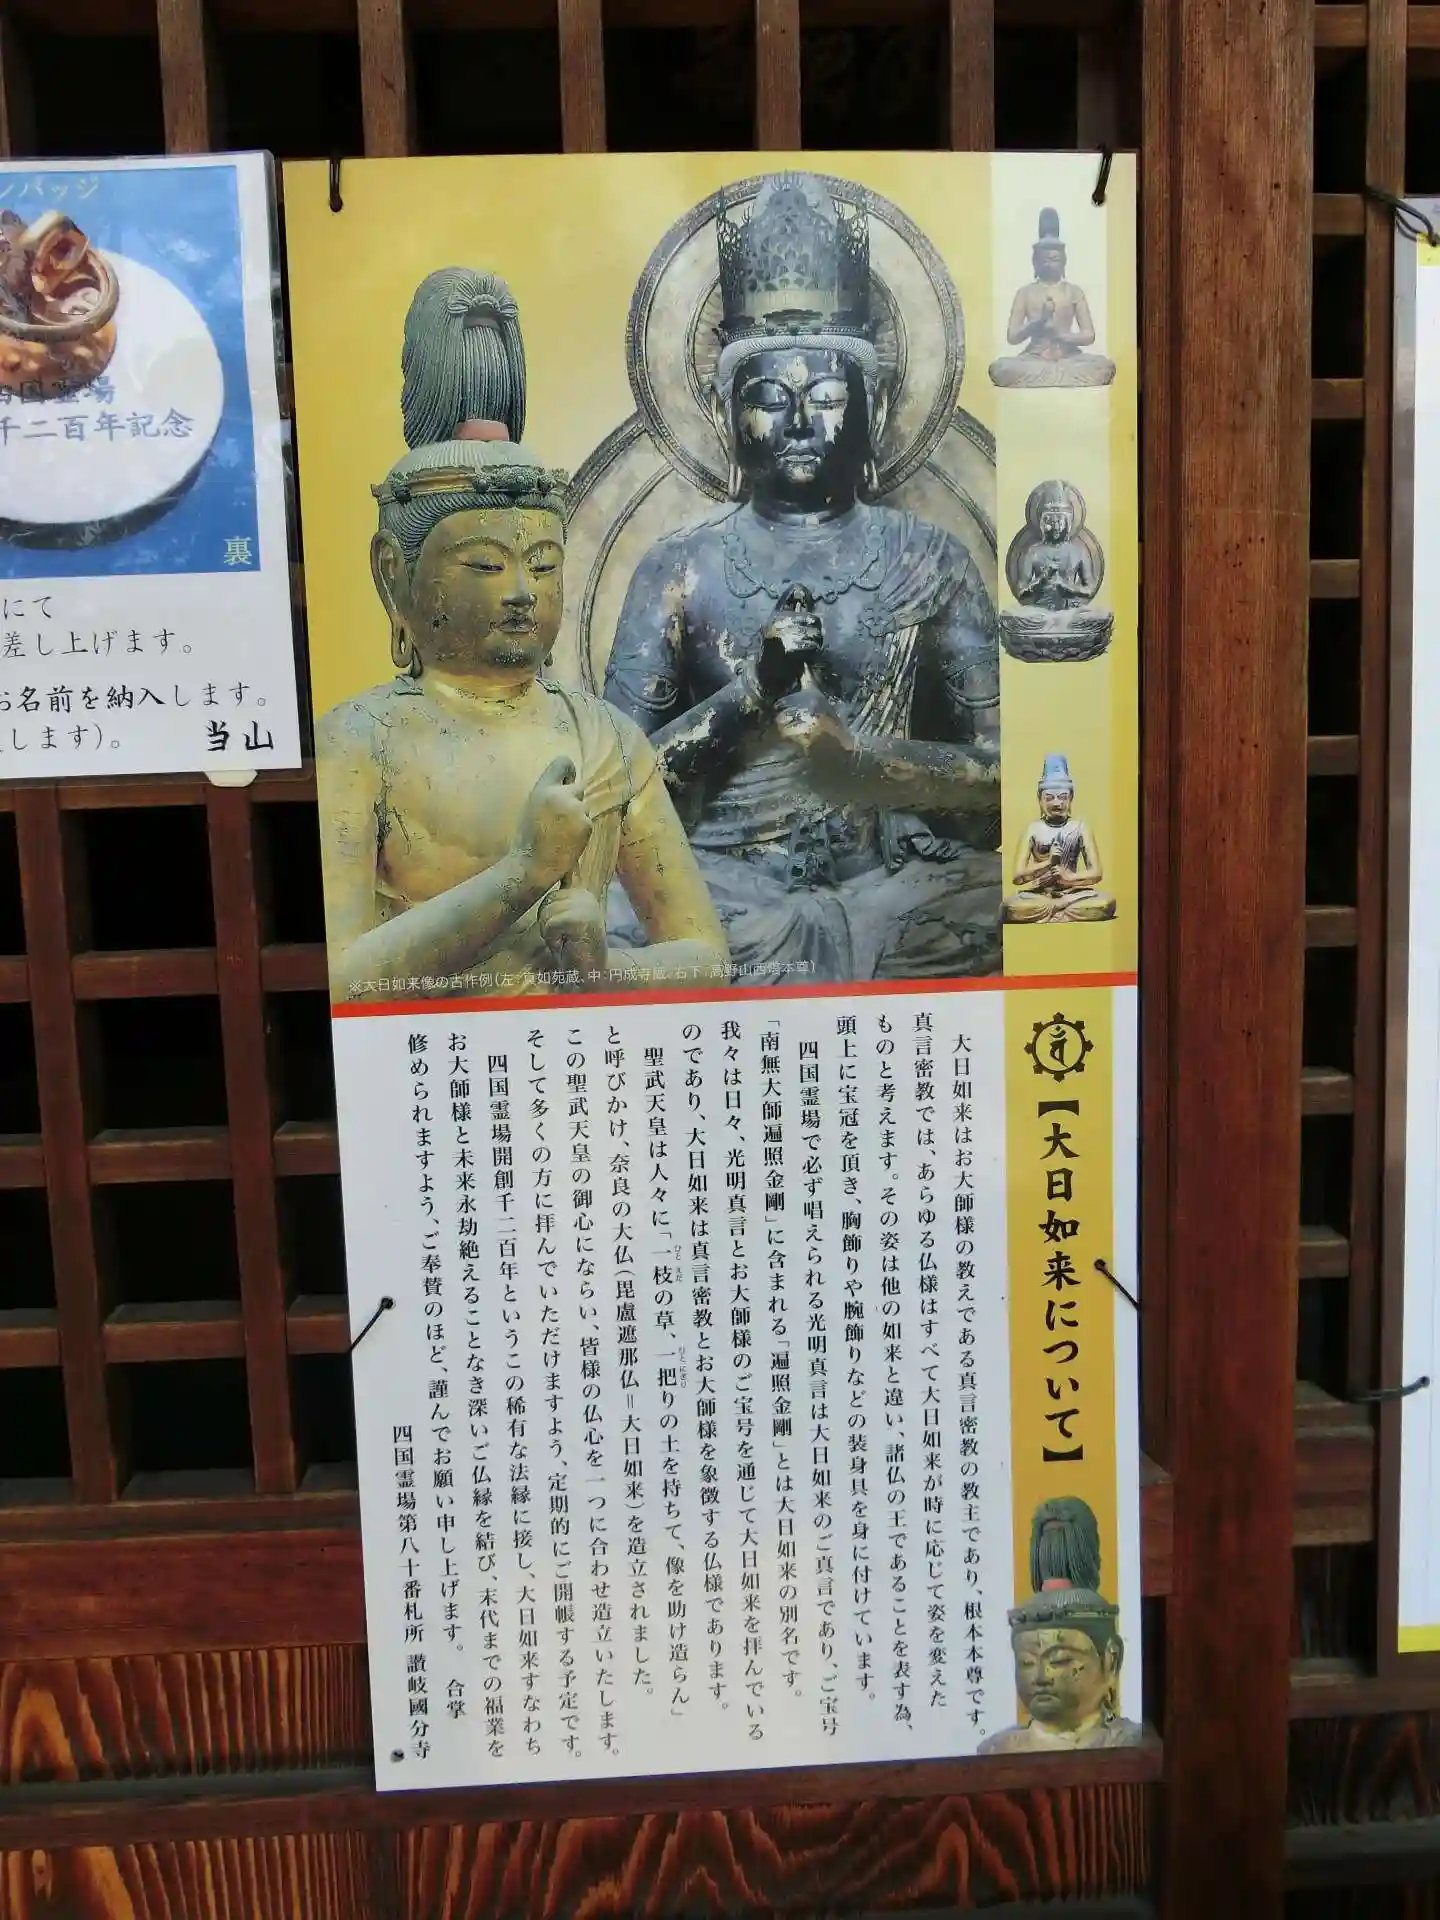 ンバッジ
四国霊場
千二百年記念
裏
にて
差し上げます。
お名前を納入します。
します)。
当山
※大日如来像の古作例(左:真如苑蔵、中:円成寺蔵、右下:高野山西塔本尊)
【大日如来について】
大日如来はお大師様の教えである真言密教の教主であり、根本本尊です。
真言密教では、あらゆる仏様はすべて大日如来が時に応じて姿を変えた
ものと考えます。その姿は他の如来と違い、諸仏の王であることを表す為、
頭上に宝冠を頂き、胸飾りや腕飾りなどの装身具を身に付けています。
四国霊場で必ず唱えられる光明真言は大日如来のご真言であり、ご宝号
「南無大師遍照金剛」に含まれる「遍照金剛」とは大日如来の別名です。
我々は日々、光明真言とお大師様のご宝号を通じて大日如来を拝んでいる
のであり、大日如来は真言密教とお大師様を象徴する仏様であります。
聖武天皇は人々に「一枝の草、一把りの土を持ちて、像を助け造らん」
と呼びかけ、奈良の大仏(毘盧遮那仏=大日如来)を造立されました。
この聖武天皇の御心にならい、皆様の仏心を一つに合わせ造立いたします。
そして多くの方に拝んでいただけますよう、定期的にご開帳する予定です。
四国霊場開創千二百年というこの稀有な法縁に接し、大日如来すなわち
お大師様と未来永劫絶えることなき深いご仏縁を結び、末代までの福業を
修められますよう、ご奉賛のほど、謹んでお願い申し上げます。 合掌
四国霊場第八十番札所 讃岐國分寺